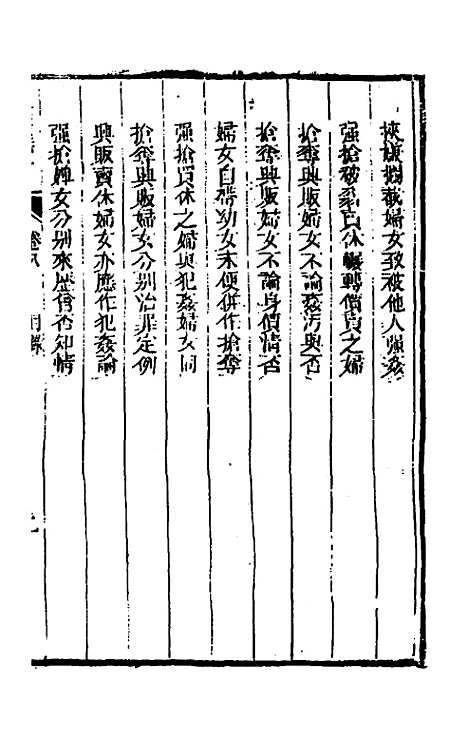 挾嫌搶截婦女致被他人強姦
強搶破案已休輾轉價買之婦
搶奪興販婦女不論姦污與否
搶奪興販婦女不論身價清否
婦女自帶幼女未便併作搶奪
強搶買休之婦與犯姦婦女同
搶奪興販婦女分別治非定例
興販賣休婦女亦應作犯姦論
強搶娼女分別來歷曾否知情
卷八 目錄